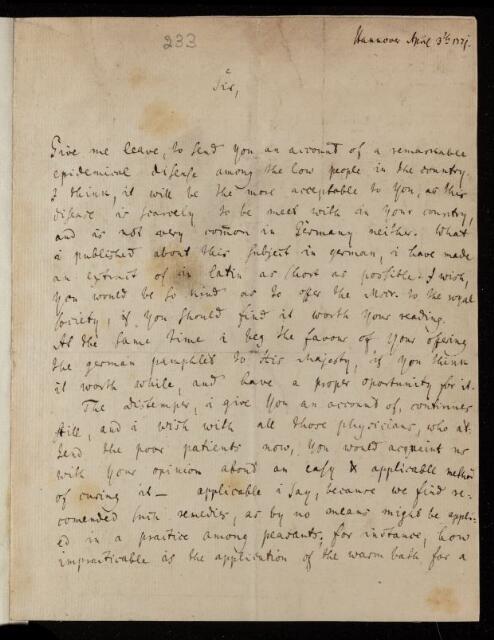 233
Hannover April 3th 1771.
Sir,
Give me leave, to send You an account of a remarkable
epidemical disease among the low people in the country.
I think, it will be the more acceptable to You, as this
disease is scarcely to be meet with in Your country,
and is not very common in Germany neither. What
i published about this subject in german, i have made
an extract of in latin as short as possible. I wish,
You would be so kind as to offer the to the royal
Society, if You should find it worth Your reading.
At the same time i beg the favour of Your offering
the german pamphlet to His Majesty, if You think
it worth while, and have a proper oportunity for it.
The distemper, i give You an account of, continues
still, and i wish with all those physicians, who at-
tend the poor patients now, You would acquaint us
with Your opinion about an easy & applicable method
of curing it — applicable i say, because we find re-
comended such remedies, as by no means might be appli-
ed in a practice among peasants, for instance, how
impracticable is the application of the warm bath for a